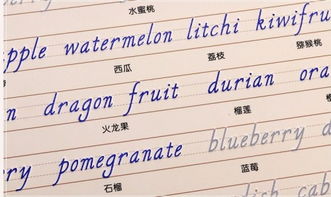 水蜜桃
apple watermelon litchi kiwifru
西瓜 荔枝 猕猴桃
n dragon fruit durian ora
火龙果 榴莲
ry pomegranate blueberry
石榴 蓝莓